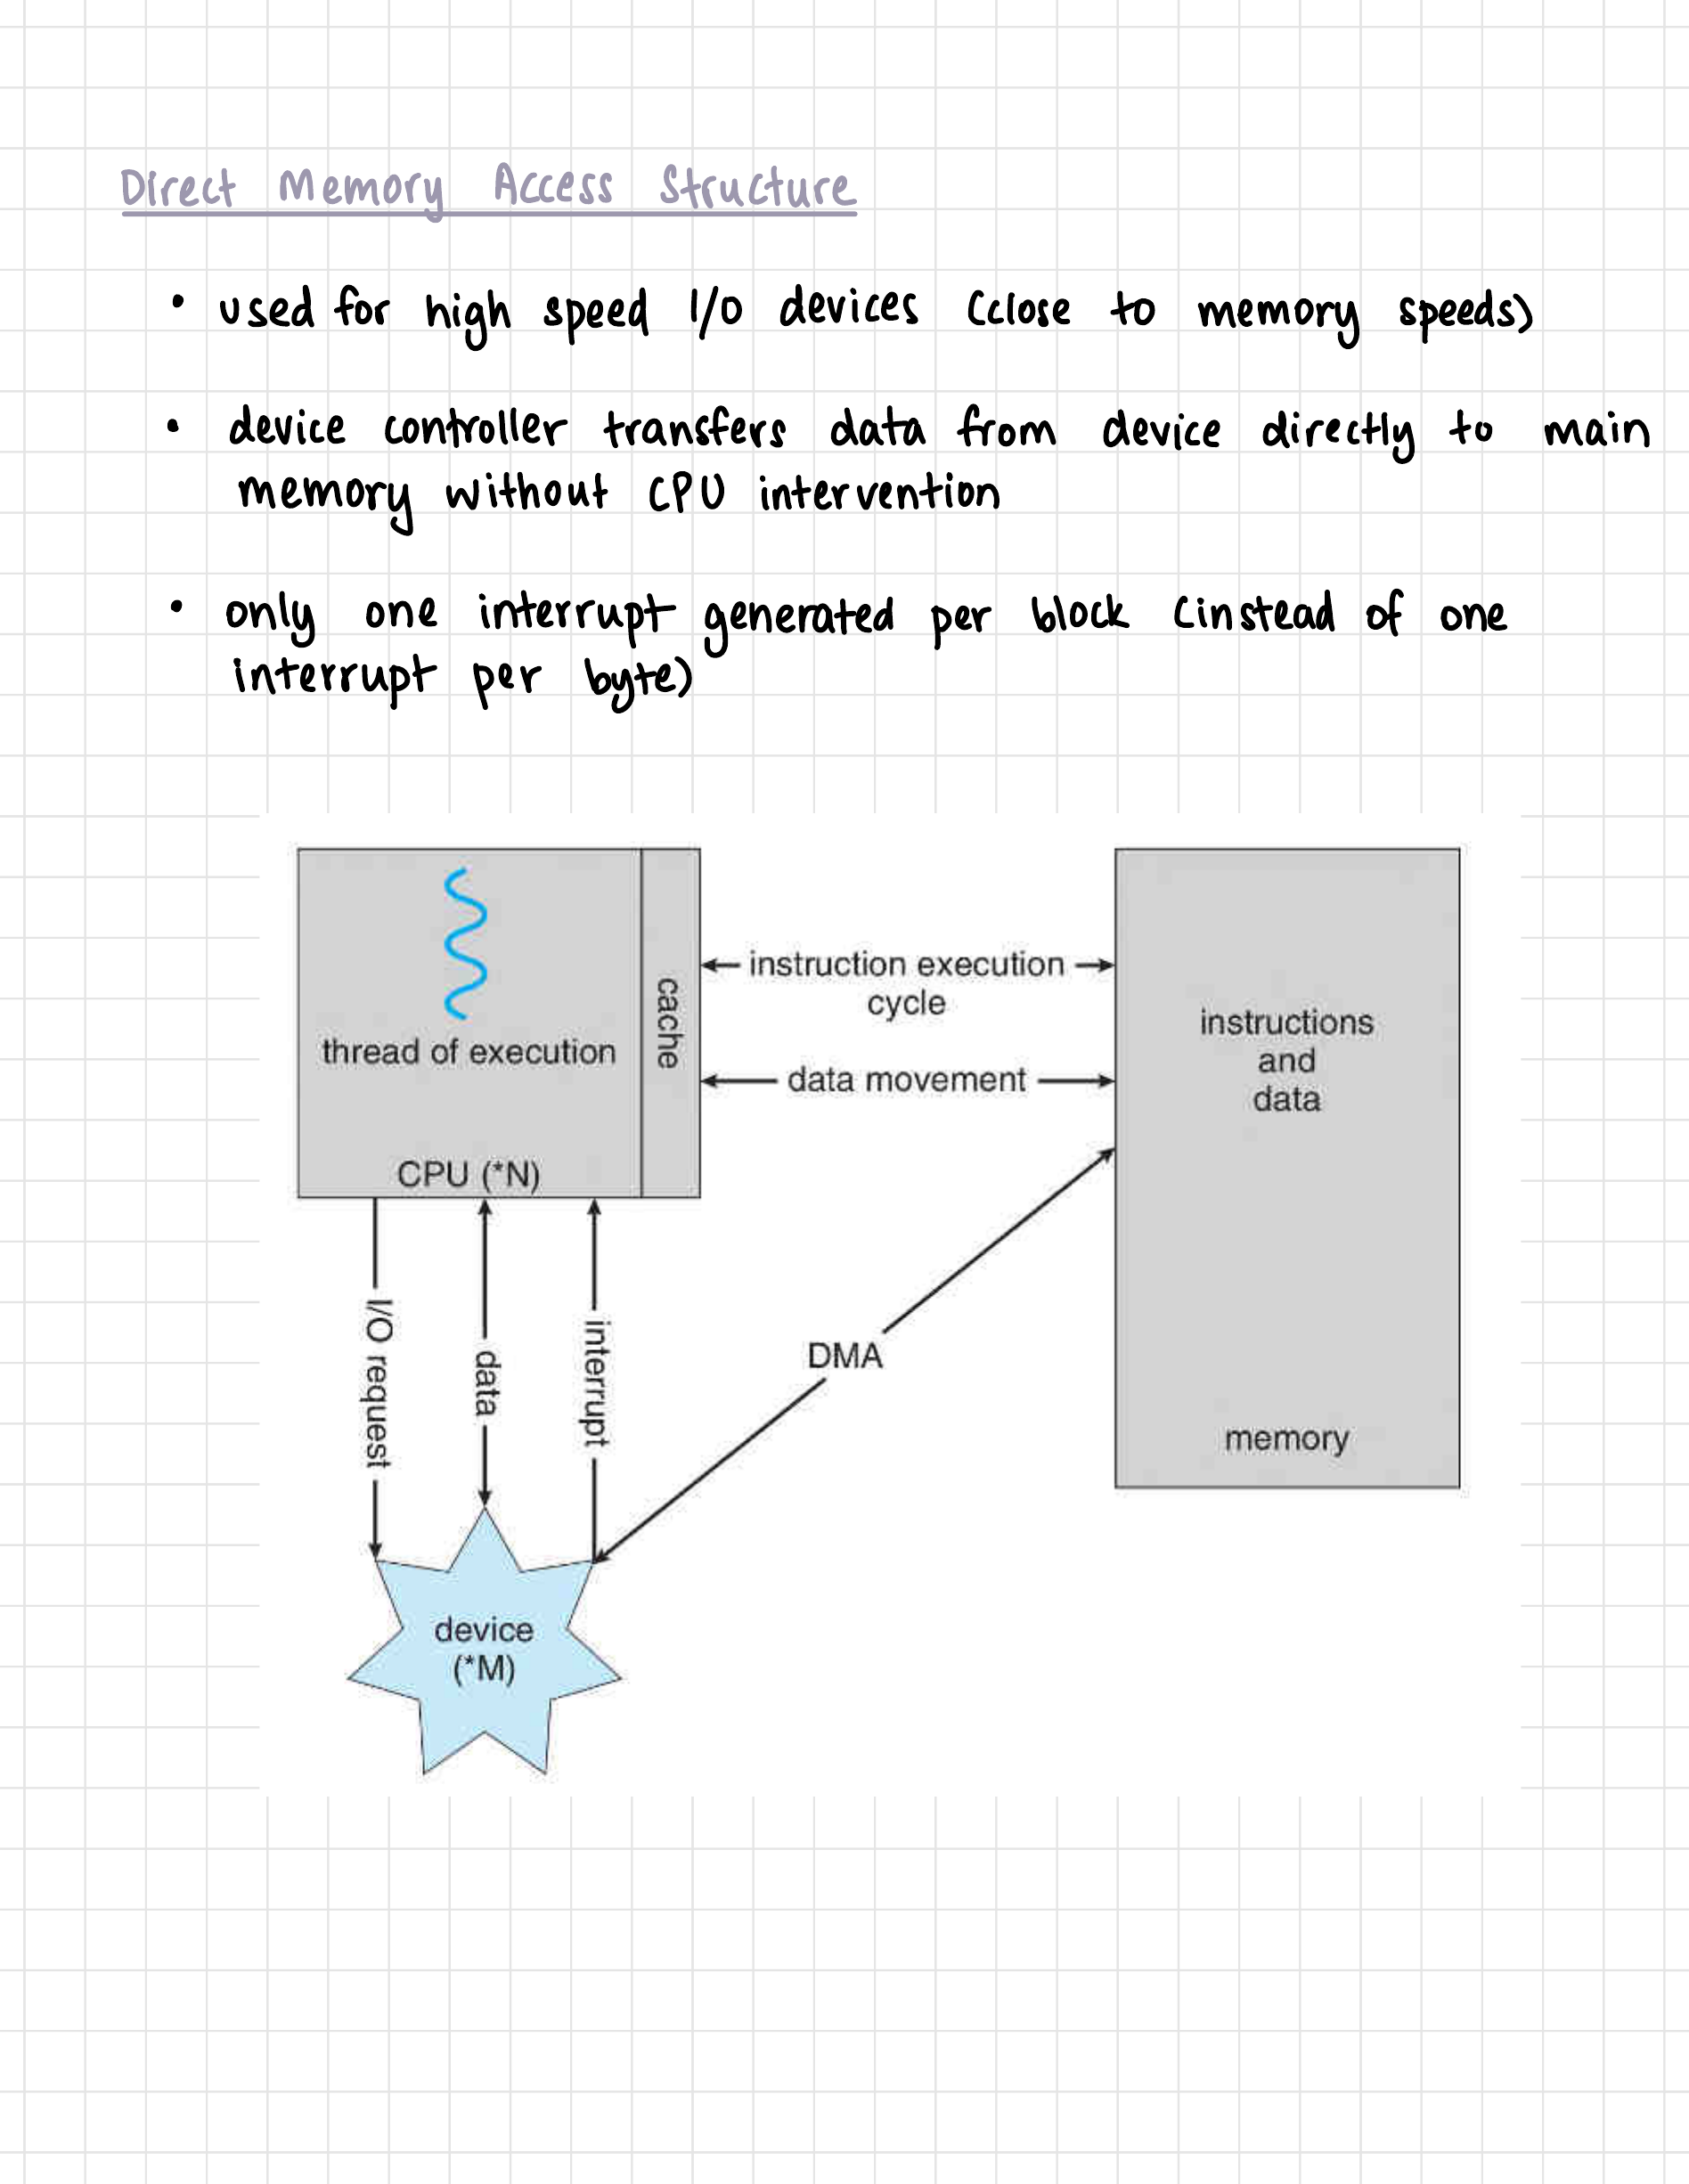 Direct Memory Access Structure
• used for high speed I/O devices (close to memory speeds)
• device controller transfers data from device directly to main
memory without CPU intervention
• only one interrupt generated per block (instead of one
interrupt per byte)
thread of execution
cache
CPU (*N)
instruction execution
cycle
data movement
instructions
and
data
memory
I/O request
data
interrupt
DMA
device
(*M)